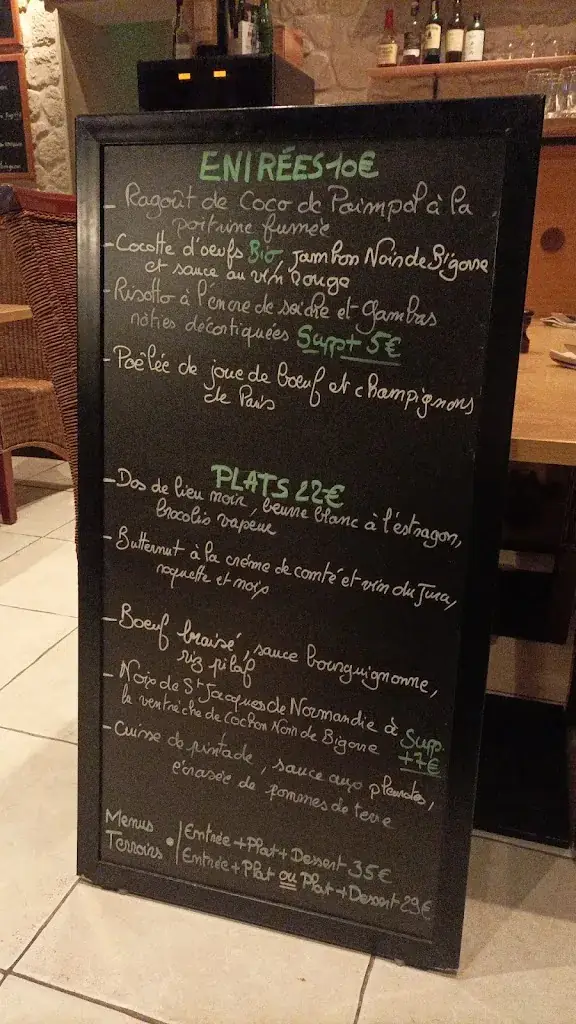 ENTRÉES 10€
- Ragoût de Coco de Paimpol à la
poitrine fumée
- Cocotte d'oeufs Bio, jambon Noir de Bigorre
et sauce au vin rouge
- Risotto à l'encre de seiche et Gambas
rôties décortiquées Supp+ 5€
- Poêlée de joue de boeuf et champignons
de Paris
PLATS 22€
- Dos de lieu noir, beurre blanc à l'estragon,
brocolis vapeur
- Butternut à la crème de comté et vin du Jura,
roquette et noix
- Boeuf braisé, sauce bourguignonne,
riz pilaf
- Noix de St Jacques de Normandie à Supp.
la ventrèche de Cochon Noir de Bigorre +7€
- Cuisse de pintade, sauce aux pleurotes,
écrasée de pommes de terre
Menus Terroirs •
Entrée + Plat + Dessert 35€
Entrée + Plat ou Plat + Dessert 29€